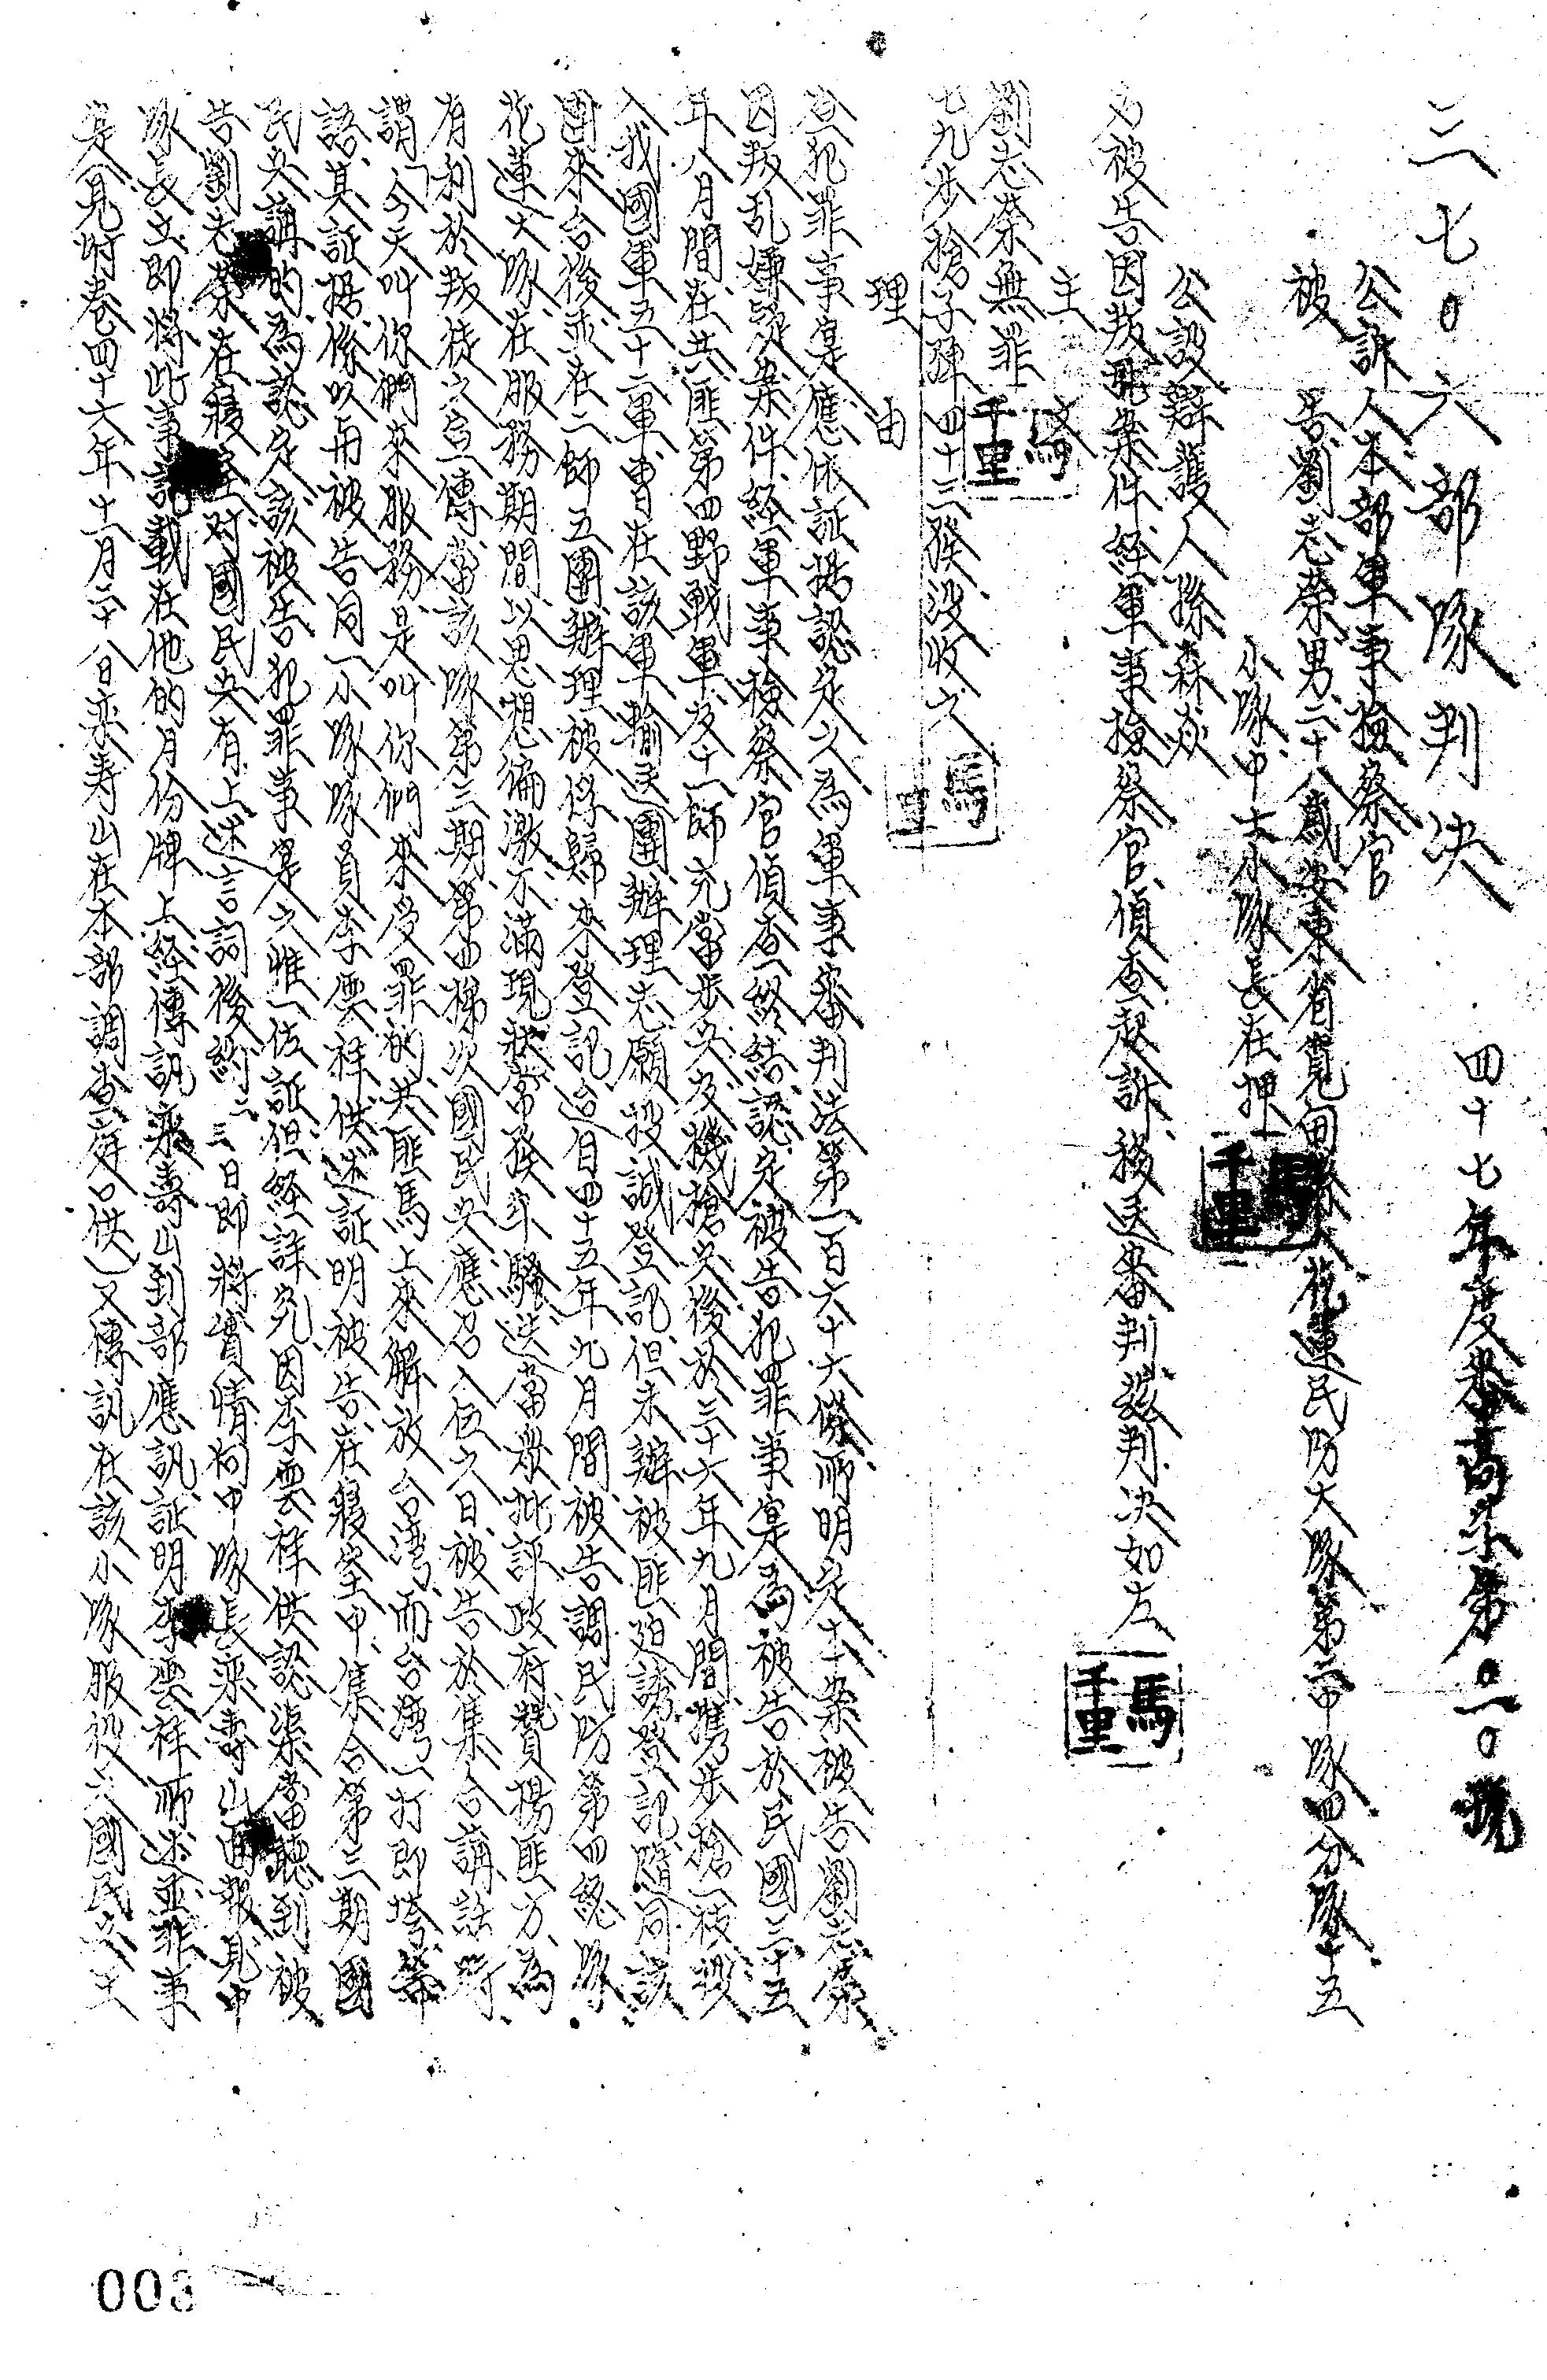 三七〇六部隊判決
四十七年度𠅘高案第〇二〇號
公訴人本部軍事檢察官
被告劉志榮男二十八歲安東省寬甸縣人花蓮民防大隊第二中隊四分隊十五
小隊中士小隊長在押
公設辯護人孫森焱
右被告因叛亂案件經軍事檢察官偵查起訴移送審判茲判決如左
主文
劉志榮無罪
七九步槍子彈四十三發沒收之
理由
查犯罪事實應依証据認定之為軍事審判法第一百六十六條所明定本案被告劉志榮
因叛乱嫌疑案件經軍事檢察官偵查終結認定被告犯罪事實為被告於民國三十五
年八月間在共匪第四野戰軍及十一師充當步兵及機槍兵後於三十六年九月間攜步槍一枝投
入我國軍五十二軍曾在該軍輸送團辦理志願投誠登記但未辦被匪迫誘登記隨同該
團來台後並在二師五團辦理被俘歸來登記迨自四十五年九月間被告調民防第四總隊
花蓮大隊在服務期間以思想偏激不滿現狀常發牢騷迭當眾批評政府贊揚匪方為
有利於叛徒之宣傳當該隊第三期第四梯次國民兵應召入伍之日被告於集合講話時
謂「今天叫你們來服務是叫你們來受罪的共匪馬上來解放台灣而台灣一打即垮」等
語其証据係以再被告同一小隊隊員李雲祥供述証明被告在寢室中集合第三期國
民兵講的為認定該被告犯罪事實之惟一佐証但經詳究因李雲祥供認渠當聽到被
告劉志榮在寢室对國民兵有上述言詞後約二三日即將實情向中隊長乘壽山面報見中
隊長立即將此事記載在他的月份牌上經傳訊乘壽山到部應訊証明李雲祥所述並非事
實(見附卷四十六年十一月二十八日乘寿山在本部調查庭口供)又傳訊在該小隊服役之國民兵王
馬千里
馬千里
馬千里
馬千里
003